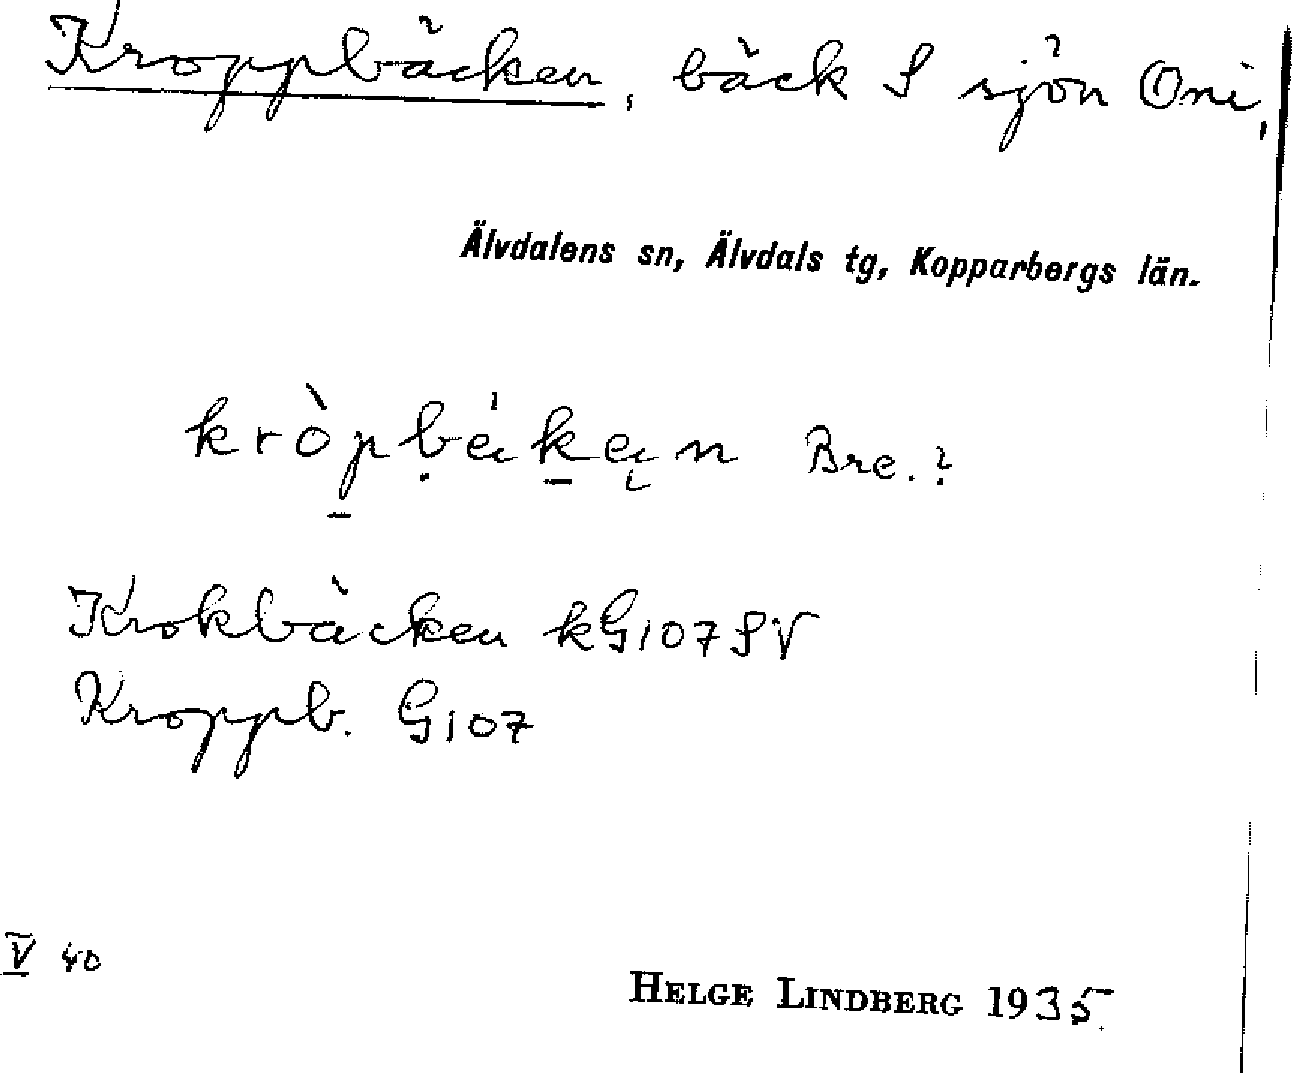 Kroppbäcken, bäck S sjön Oni,
Älvdalens sn, Älvdals tg, Kopparbergs län.
kròpbäkän Bre.?
Krokbäcken kG107SV
Kroppb. G107
V 40
HELGE LINDBERG 1935